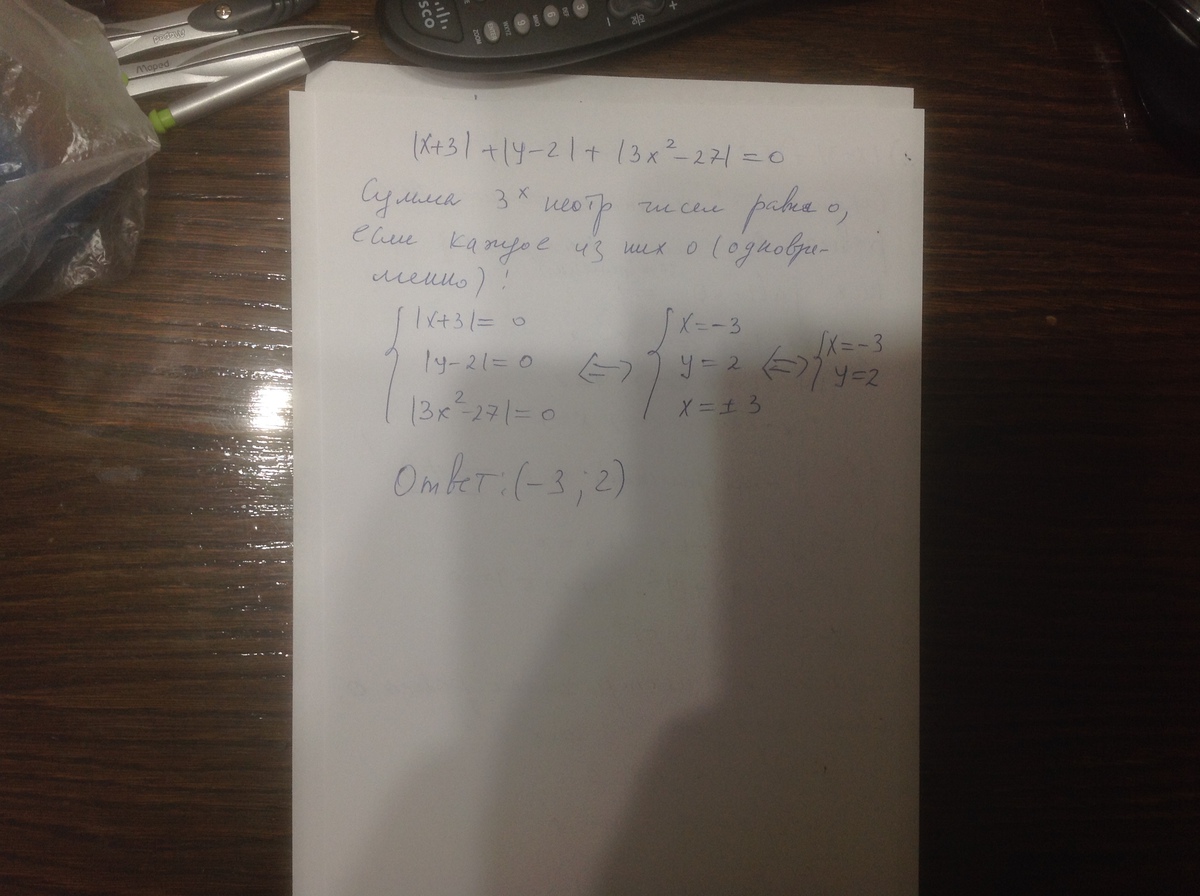 |x+3| + |y-2| + |3x²-27| = 0
Сумма 3ˣ неотр чисел равна 0,
если каждое из них 0 (одновре-
менно)!
|x+3| = 0
|y-2| = 0
|3x²-27| = 0
<=>
x = -3
y = 2
x = ± 3
<=>
x = -3
y = 2
Ответ: (-3 ; 2)
Mapped